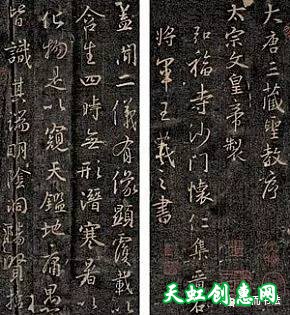 大唐三藏聖教序
太宗文皇帝製
弘福寺沙門懷仁集晉右
將軍王羲之書
蓋聞二儀有像顯覆載以
含生四時無形潛寒暑以
化物是以窺天鑑地庸愚
皆識其端明陰洞陽賢哲
天虹创意网